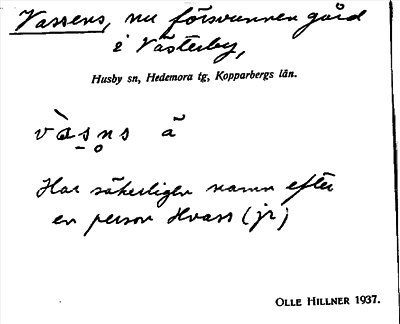 Vassens, nu försvunnen gård
i Västerby,
Husby sn, Hedemora tg, Kopparbergs län.
vàs̠n̥s ã
Har säkerligen namn efter
en person Hvass (jr)
OLLE HILLNER 1937.